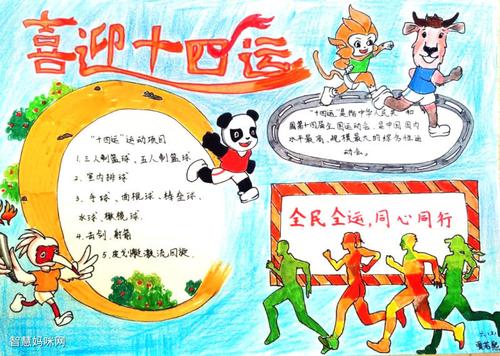 喜迎十四运
"十四运"运动项目
1.三人制篮球、五人制篮球
2.室内排球
3.手球、曲棍球、棒垒球、
水球、橄榄球.
4.击剑.射箭
5.皮划艇激流回旋.
"十四运"是指中华人民共和
国第十四届全国运动会,是中国国内
水平最高,规模最大的综合性运
动会。
全民全运,同心同行
智慧妈咪网